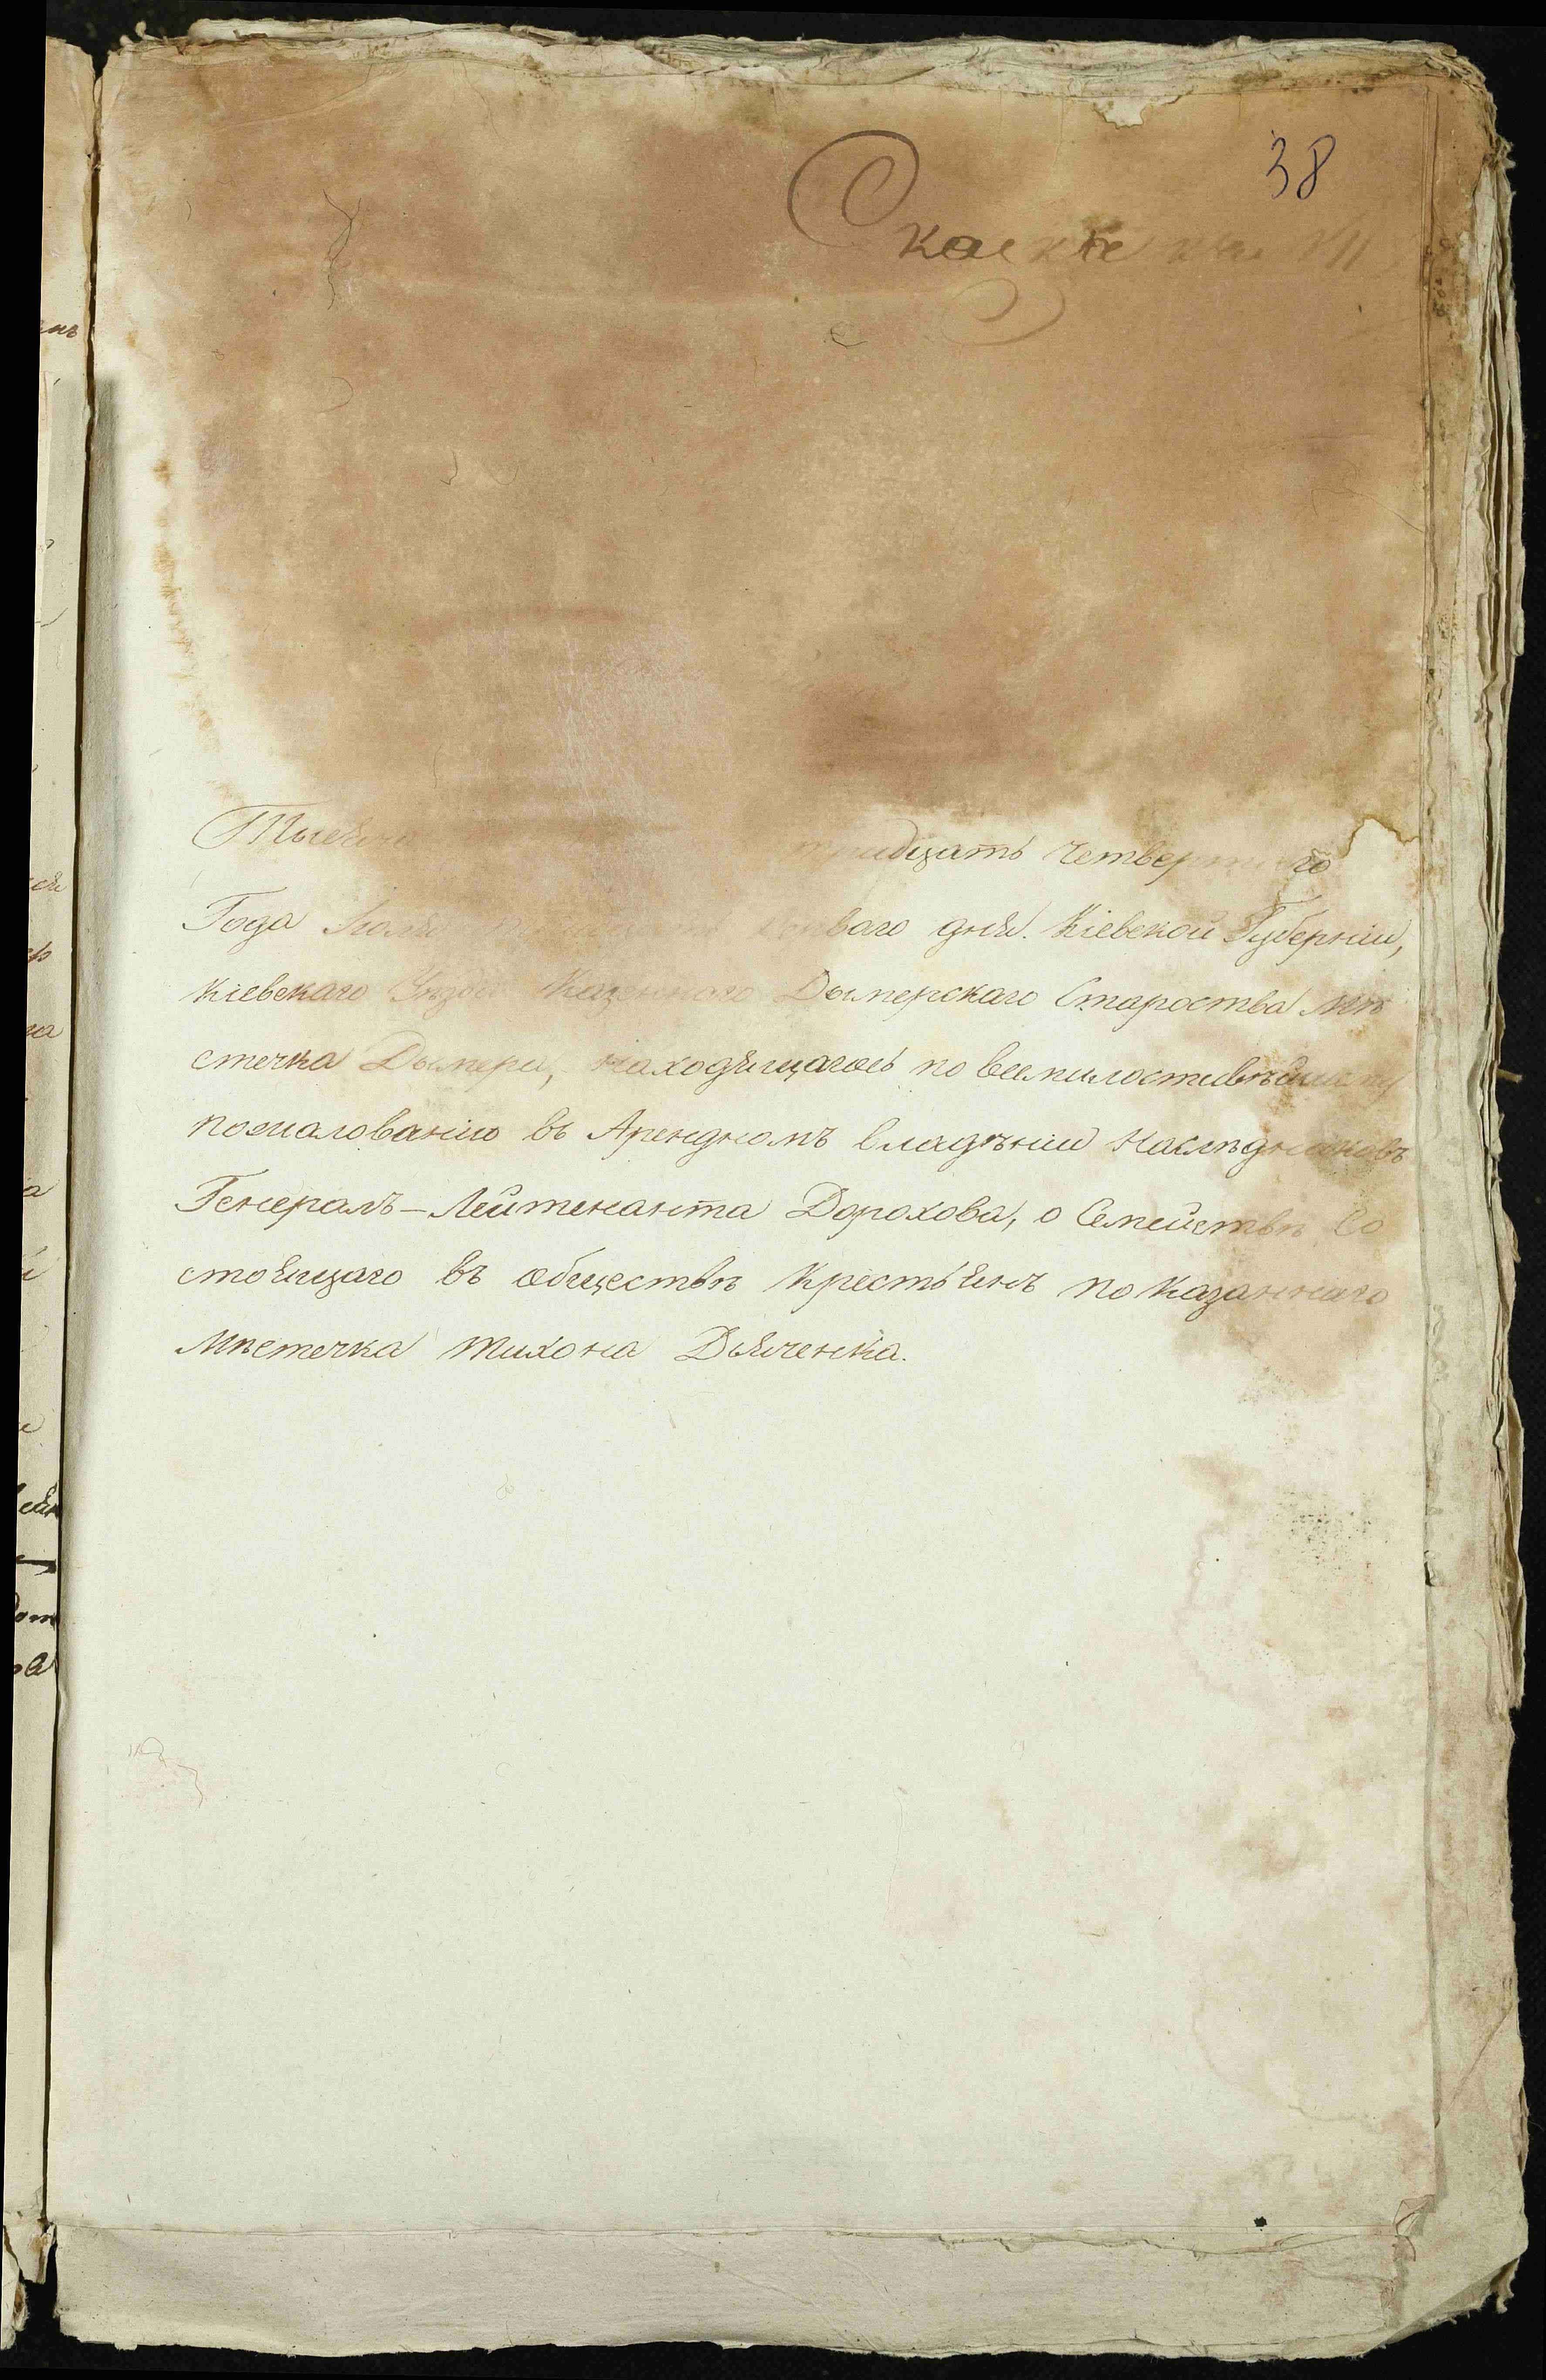 38
Тысяча тридцать четвертого
Года Іюля перваго дня. Кіевской Губерніи,
Кіевскаго Уѣзда Казеннаго Дымерскаго Староства Мѣ
стечка Дымера, находящагось по всемилостивѣйшему
пожалованію въ Арендномъ владѣніи Наслѣдниковъ
Генералъ-Лейтенанта Дорохова, о Семействѣ Со
стоящаго въ обществѣ Крестьянъ показаннаго
Мѣстечка Тихона Дьяченка.